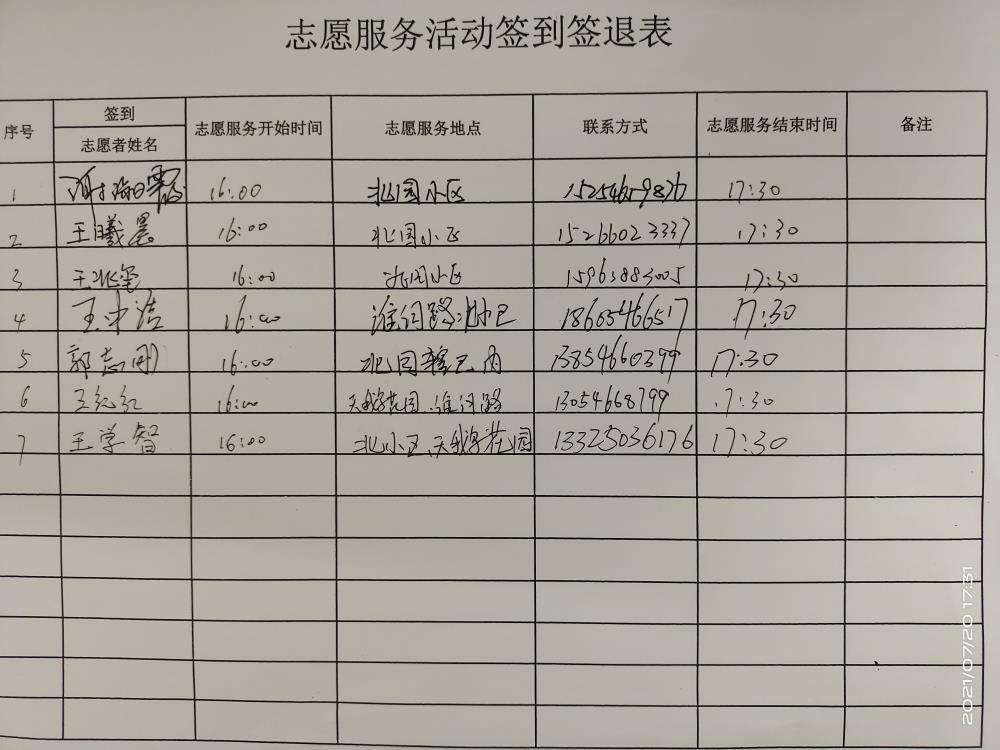 志愿服务活动签到签退表
序号 签到 志愿者姓名 志愿服务开始时间 志愿服务地点 联系方式 志愿服务结束时间 备注
1 16:00 北园小区 15254659876 17:30
2 王曦晨 16:00 北园小区 15266023337 17:30
3 王兆玺 16:00 北园小区 15963883005 17:30
4 王中洁 16:00 淮河路 18605466517 17:30
5 郭志刚 16:00 北园 内 13854660399 17:30
6 王纪红 16:00 天鹅花园 淮河路 13054668799 17:30
7 王学智 16:00 北小区、天鹅花园 13325036176 17:30
2021/07/20 17:31